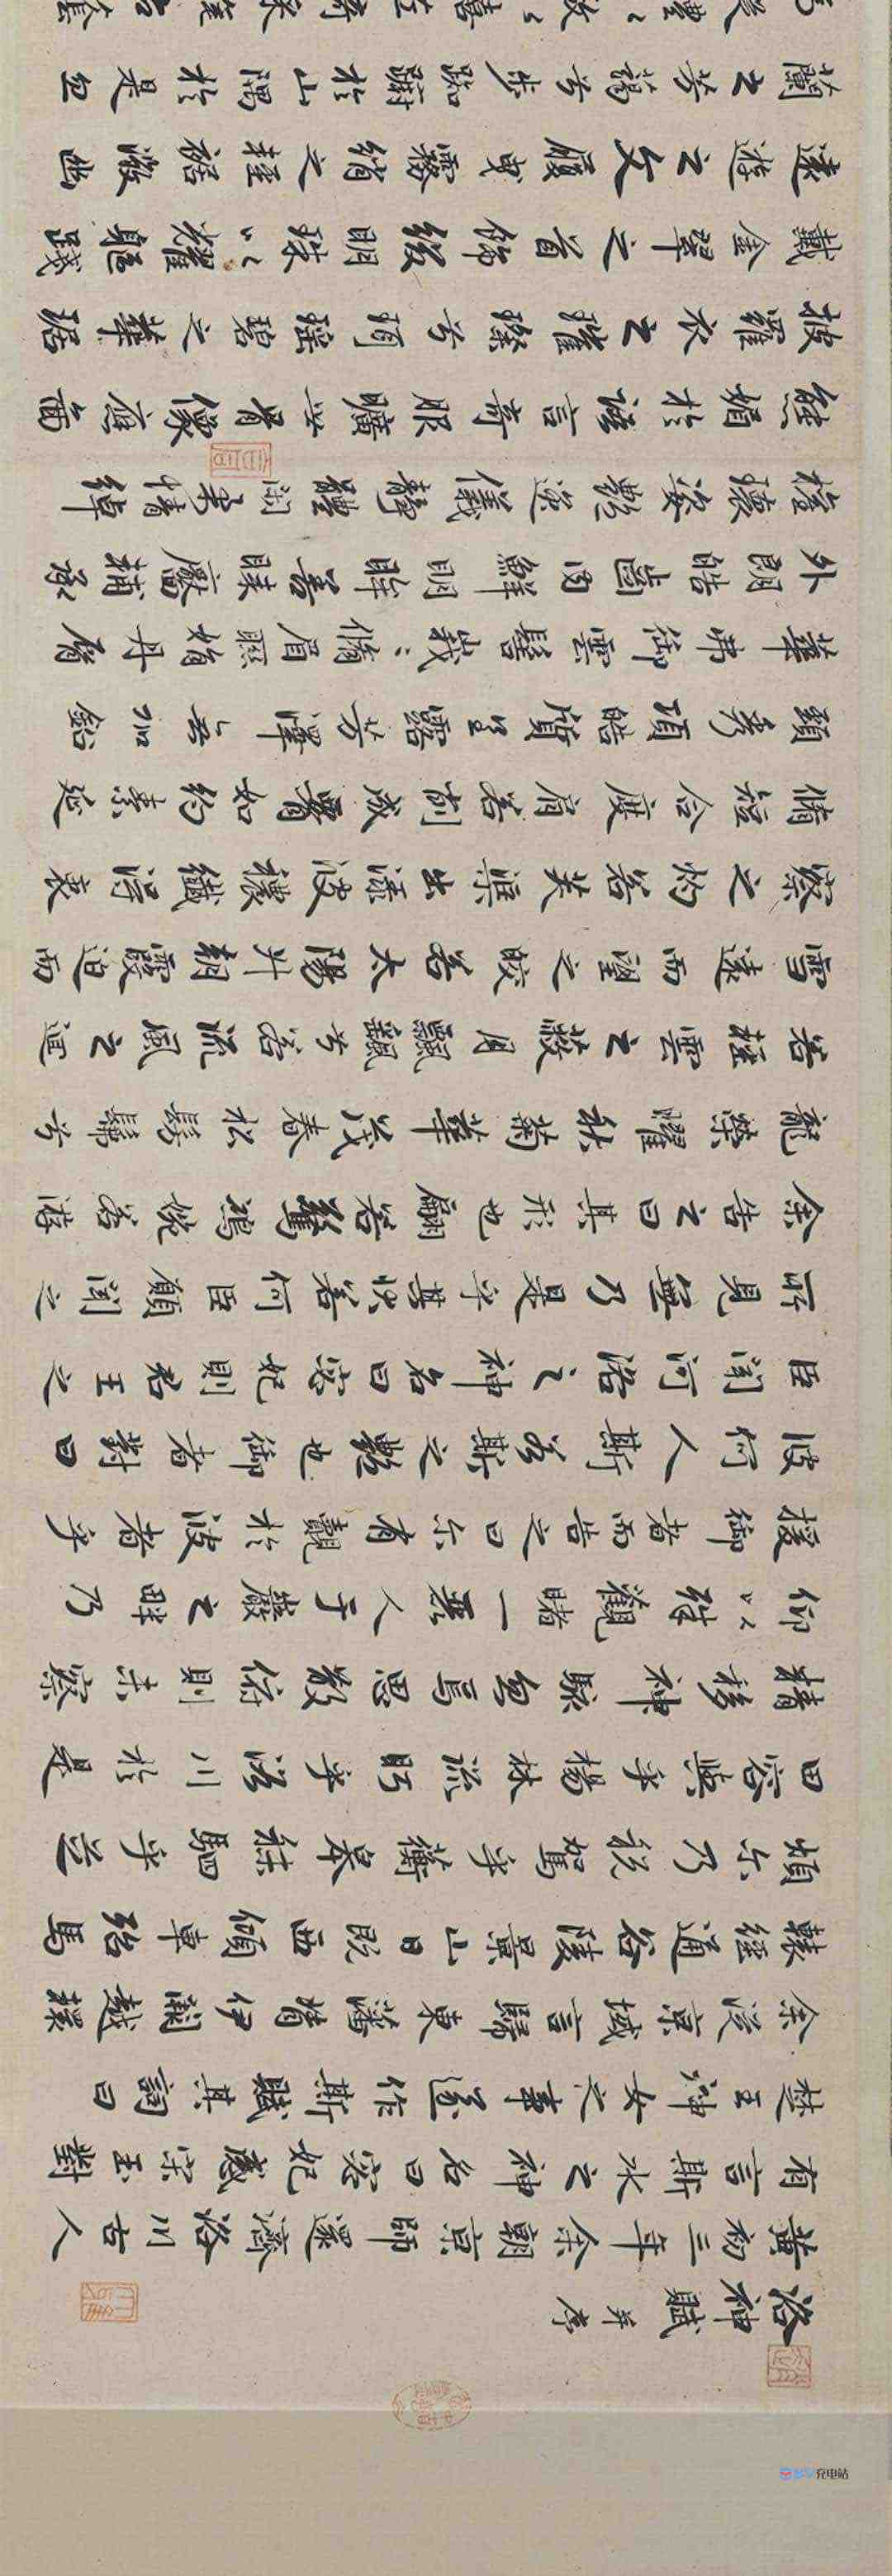 洛神賦 并序
黃初三年余朝京師還濟洛川古人
有言斯水之神名曰宓妃感宋玉對
楚王神女之事遂作斯賦其詞曰
余從京域言歸東藩背伊闕越轘
轅經通谷陵景山日既西傾車殆馬
煩尒乃稅駕乎蘅皋秣駟乎芝
田容與乎楊林流眄乎洛川於是
精移神駭忽焉思散俯則未察
仰以殊觀睹一麗人于巖之畔乃
援御者而告之曰尒有覿於彼者乎
彼何人斯若斯之艷也御者對曰
臣聞河洛之神名曰宓妃則君王之
所見無乃是乎其狀若何臣願聞之
余告之曰其形也翩若驚鴻婉若游
龍榮曜秋菊華茂春松髣髴兮
若輕雲之蔽月飄颻兮若流風之迴
雪遠而望之皎若太陽升朝霞迫而
察之灼若芙蕖出淥波穠纖得衷
脩短合度肩若削成腰如約素延
頸秀項皓質呈露芳澤無加鉛
華弗御雲髻峩〻脩眉聯娟丹脣
外朗皓齒內鮮明眸善睞靨輔承
權瓌姿艷逸儀靜體閑柔情綽
態媚於語言奇服曠世骨像應圖
披羅衣之璀璨兮珥瑤碧之華琚
戴金翠之首飾綴明珠以耀軀踐
遠遊之文履曳霧綃之輕裾微幽
蘭之芳藹兮步踟躕於山隅於是忽
充电站